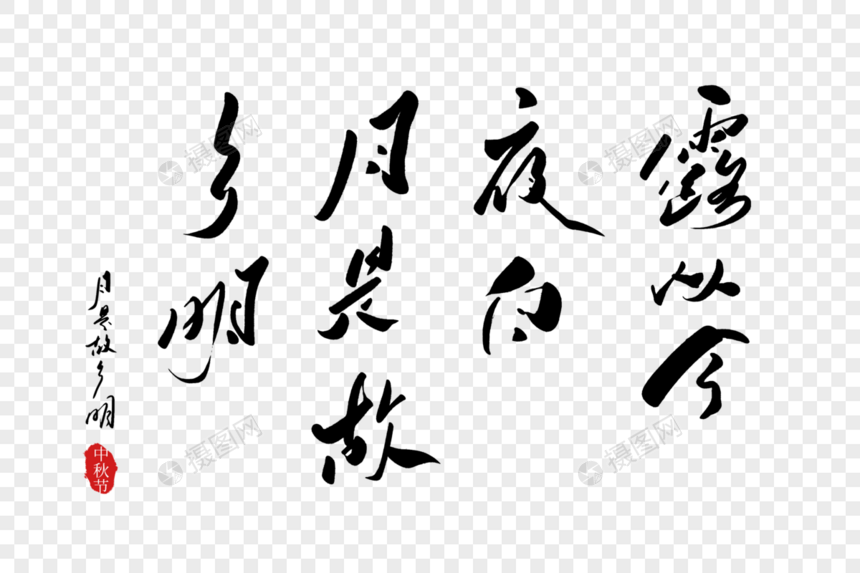 露从今
夜白
月是故
乡明
月是故乡明
中秋节
摄图网
摄图网
摄图网
摄图网
摄图网